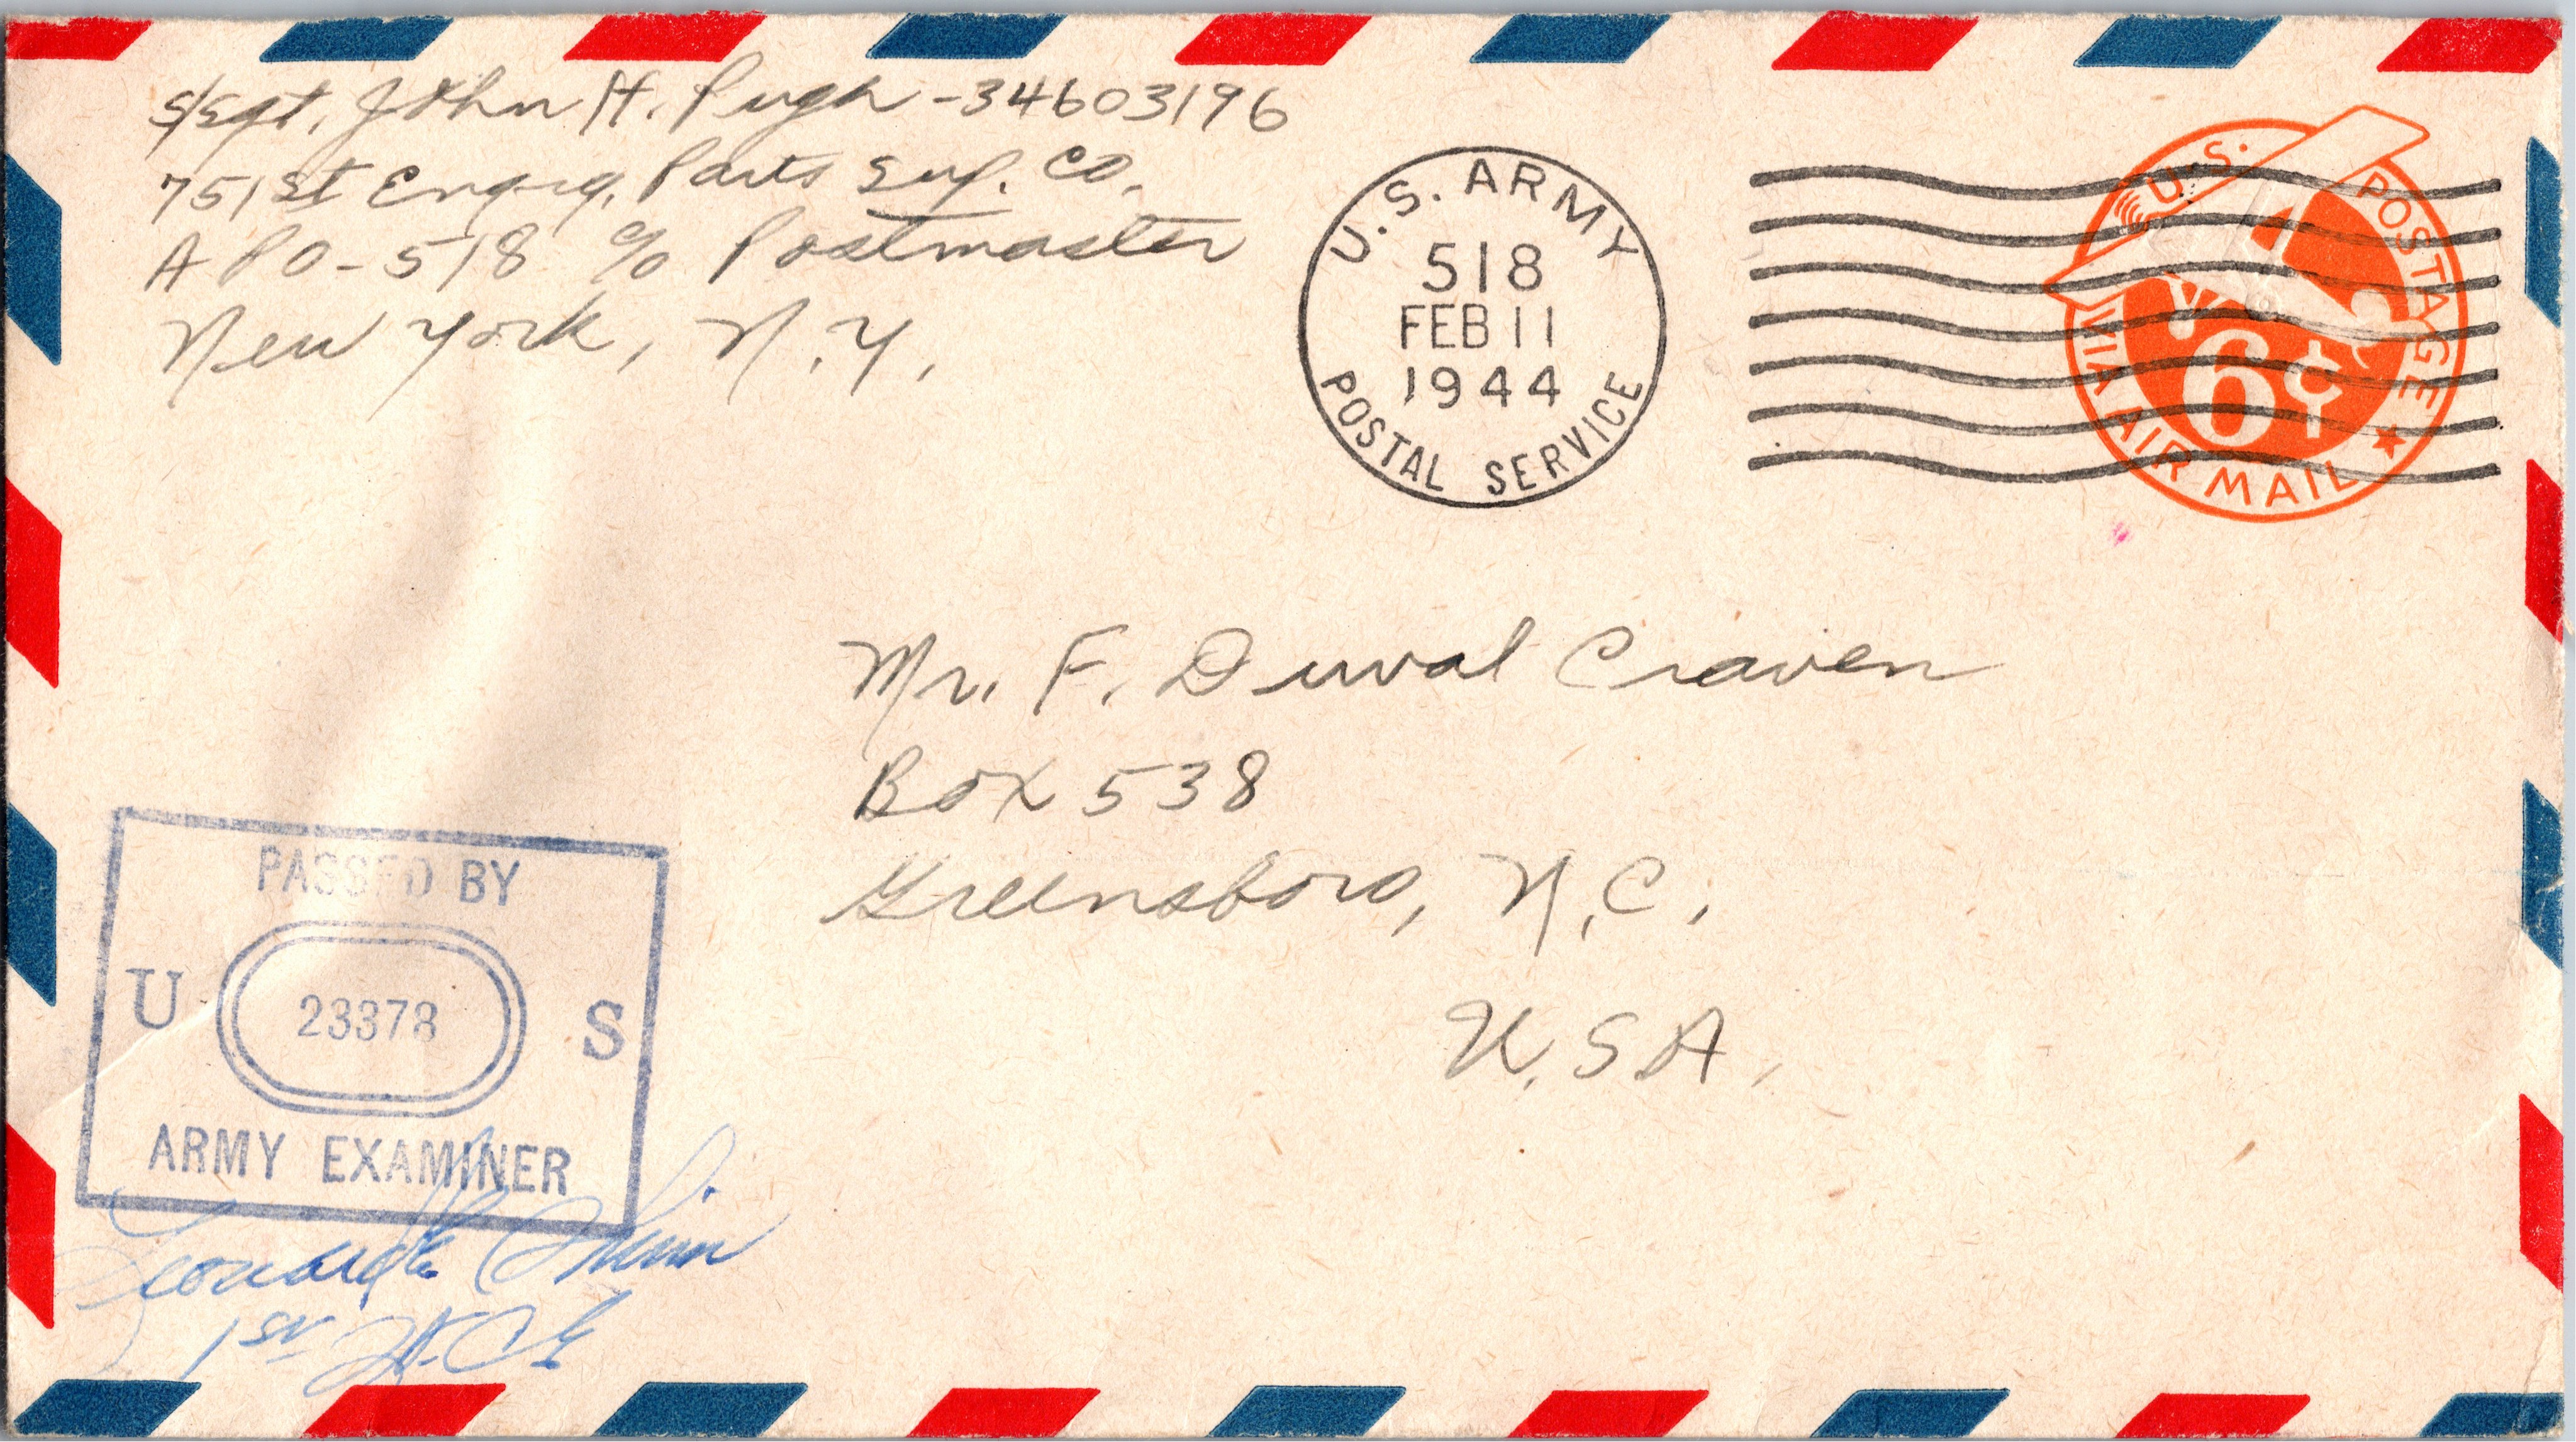 S/Sgt. John H. Pugh - 34603196
751st Engrg. Parts Sup. Co.
APO - 518 c/o Postmaster
New York, N.Y.
U.S. ARMY
518
FEB 11
1944
POSTAL SERVICE
U.S. POSTAGE
6¢
VIA AIR MAIL
Mr. F. Duval Craven
Box 538
Greensboro, N.C.
U.S.A.
PASSED BY
U 23378 S
ARMY EXAMINER
1st Lt. CE